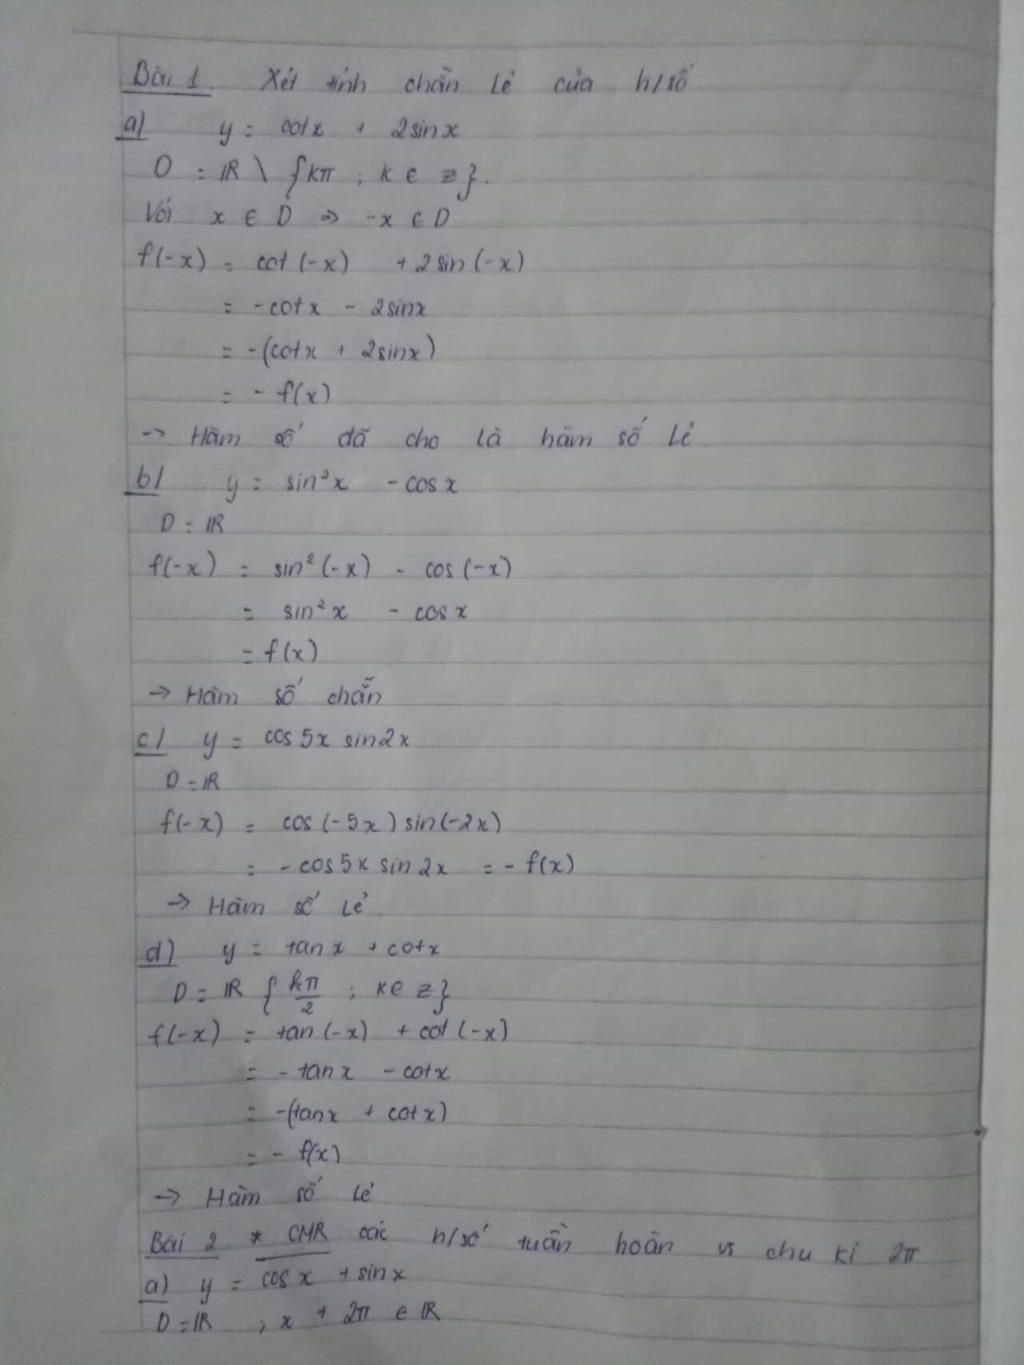 Bài 1 Xét tính chẵn lẻ của h/số.
a) y = cotx + 2sinx
D = ℝ \ {kπ ; k ∈ z}.
Với x ∈ D => -x ∈ D
f(-x) = cot(-x) + 2sin(-x)
= -cotx - 2sinx
= -(cotx + 2sinx)
= - f(x)
-> Hàm số đã cho là hàm số lẻ.
b) y = sin²x - cosx
D = ℝ
f(-x) = sin²(-x) - cos(-x)
= sin²x - cosx
= f(x)
-> Hàm số chẵn
c) y = cos5x sin2x
D = ℝ
f(-x) = cos(-5x) sin(-2x)
= -cos5x sin2x = - f(x)
-> Hàm số lẻ
d) y = tanx + cotx
D = ℝ {kπ/2 ; k ∈ z}
f(-x) = tan(-x) + cot(-x)
= - tanx - cotx
= -(tanx + cotx)
= - f(x)
-> Hàm số lẻ
Bài 2 * CMR các h/số tuần hoàn vs chu kì 2π
a) y = cosx + sinx
D = ℝ ; x + 2π ∈ ℝ